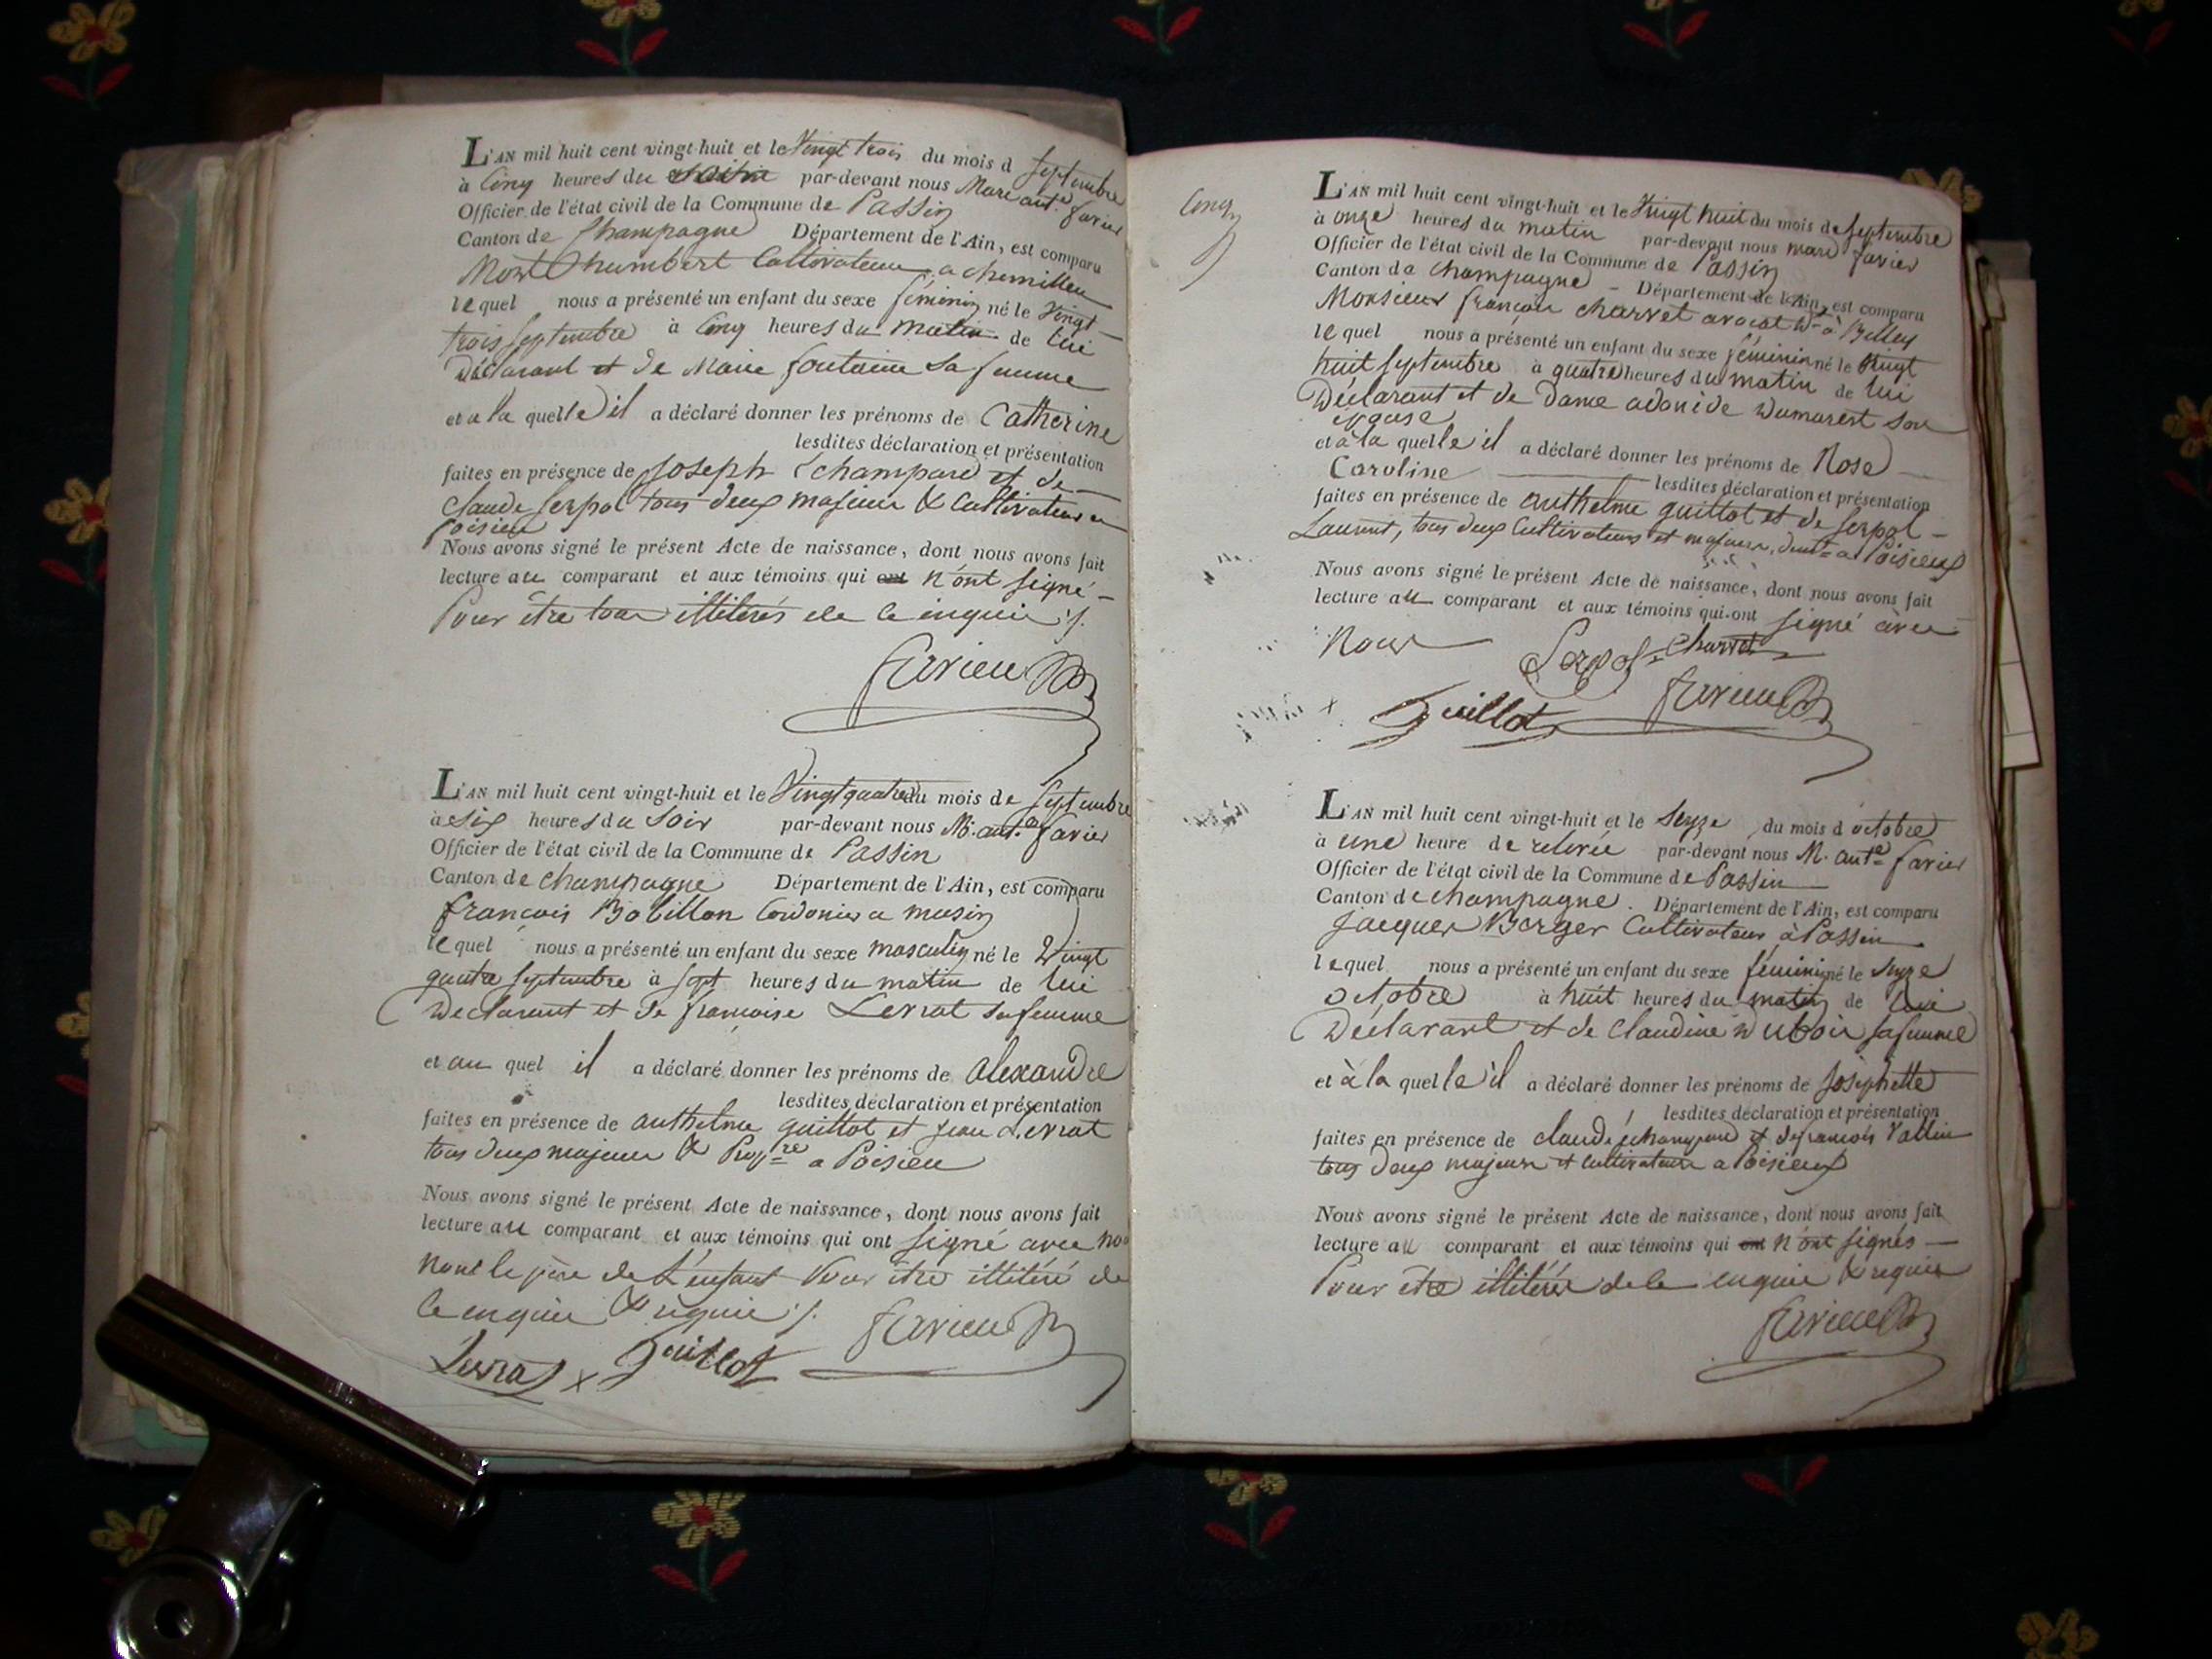 L'AN mil huit cent vingt-huit et le Vingt trois du mois d septembre
à Cinq heures du par-devant nous Marc ant.e favier
Officier de l'état civil de la Commune de Passin
Canton de Champagne Département de l'Ain, est comparu
humbert Cultivateur a chemillieu
lequel nous a présenté un enfant du sexe féminin né le Vingt
trois septembre à Cinq heures du matin de lui
Déclarant et de Marie fontaine sa femme
et a la quelle il a déclaré donner les prénoms de Catherine
lesdites déclaration et présentation
faites en présence de Joseph Echampard et de
Claude Serpol tous deux majeurs & Cultivateurs a
Poisieu
Nous avons signé le présent Acte de naissance, dont nous avons fait
lecture au comparant et aux témoins qui ont n'ont signé
Pour être tous illitérés de ce enquis ./.
favier
L'AN mil huit cent vingt-huit et le Vingt quatre du mois de septembre
a six heures du soir par-devant nous M. ant.e favier
Officier de l'état civil de la Commune de Passin
Canton de Champagne Département de l'Ain, est comparu
françois Bobillon Cordonier a musin
lequel nous a présenté un enfant du sexe masculin né le Vingt
quatre septembre à sept heures du matin de lui
Declarant et de françoise Levrat sa femme
et au quel il a déclaré donner les prénoms de alexandre
lesdites déclaration et présentation
faites en présence de anthelme guillot et jean Levrat
tous deux majeurs & Prop.re a Poisieu
Nous avons signé le présent Acte de naissance, dont nous avons fait
lecture au comparant et aux témoins qui ont signé avec no
non le père de L'enfant Pour être illitéré de
ce enquis & requis ./. favier
Levrat x Guillot
Cinq
L'AN mil huit cent vingt-huit et le Vingt huit du mois de septembre
à onze heures du matin par-devant nous marc favier
Officier de l'état civil de la Commune de Passin
Canton de Champagne Département de l'Ain, est comparu
Monsieur françois Charvet avocat à Belley
lequel nous a présenté un enfant du sexe féminin né le Vingt
huit septembre à quatre heures du matin de lui
Déclarant et de Dame adonide Dumarest son
épouse
et à la quelle il a déclaré donner les prénoms de Rose
Caroline lesdites déclaration et présentation
faites en présence de anthelme guillot et de Serpol
Laurent, tous deux Cultivateurs et majeurs, a Poisieux
Nous avons signé le présent Acte de naissance, dont nous avons fait
lecture au comparant et aux témoins qui ont signé avec
Nous Serpol Charvet
x Guillot favier
L'AN mil huit cent vingt-huit et le seyze du mois d'octobre
à une heure de relevée par-devant nous M. ant.e favier
Officier de l'état civil de la Commune de Passin
Canton de Champagne. Département de l'Ain, est comparu
Jacques Berger Cultivateur à Passin
lequel nous a présenté un enfant du sexe féminin né le seyze
octobre à huit heures du matin de lui
Déclarant et de Claudine Dubois sa femme
et à la quelle il a déclaré donner les prénoms de Joséphette
lesdites déclaration et présentation
faites en présence de Claude échampard et de françois Vallin
tous deux majeurs et cultivateurs a Poisieux
Nous avons signé le présent Acte de naissance, dont nous avons fait
lecture au comparant et aux témoins qui ont n'ont signés
Pour être illitérés de ce enquis & requis
favier